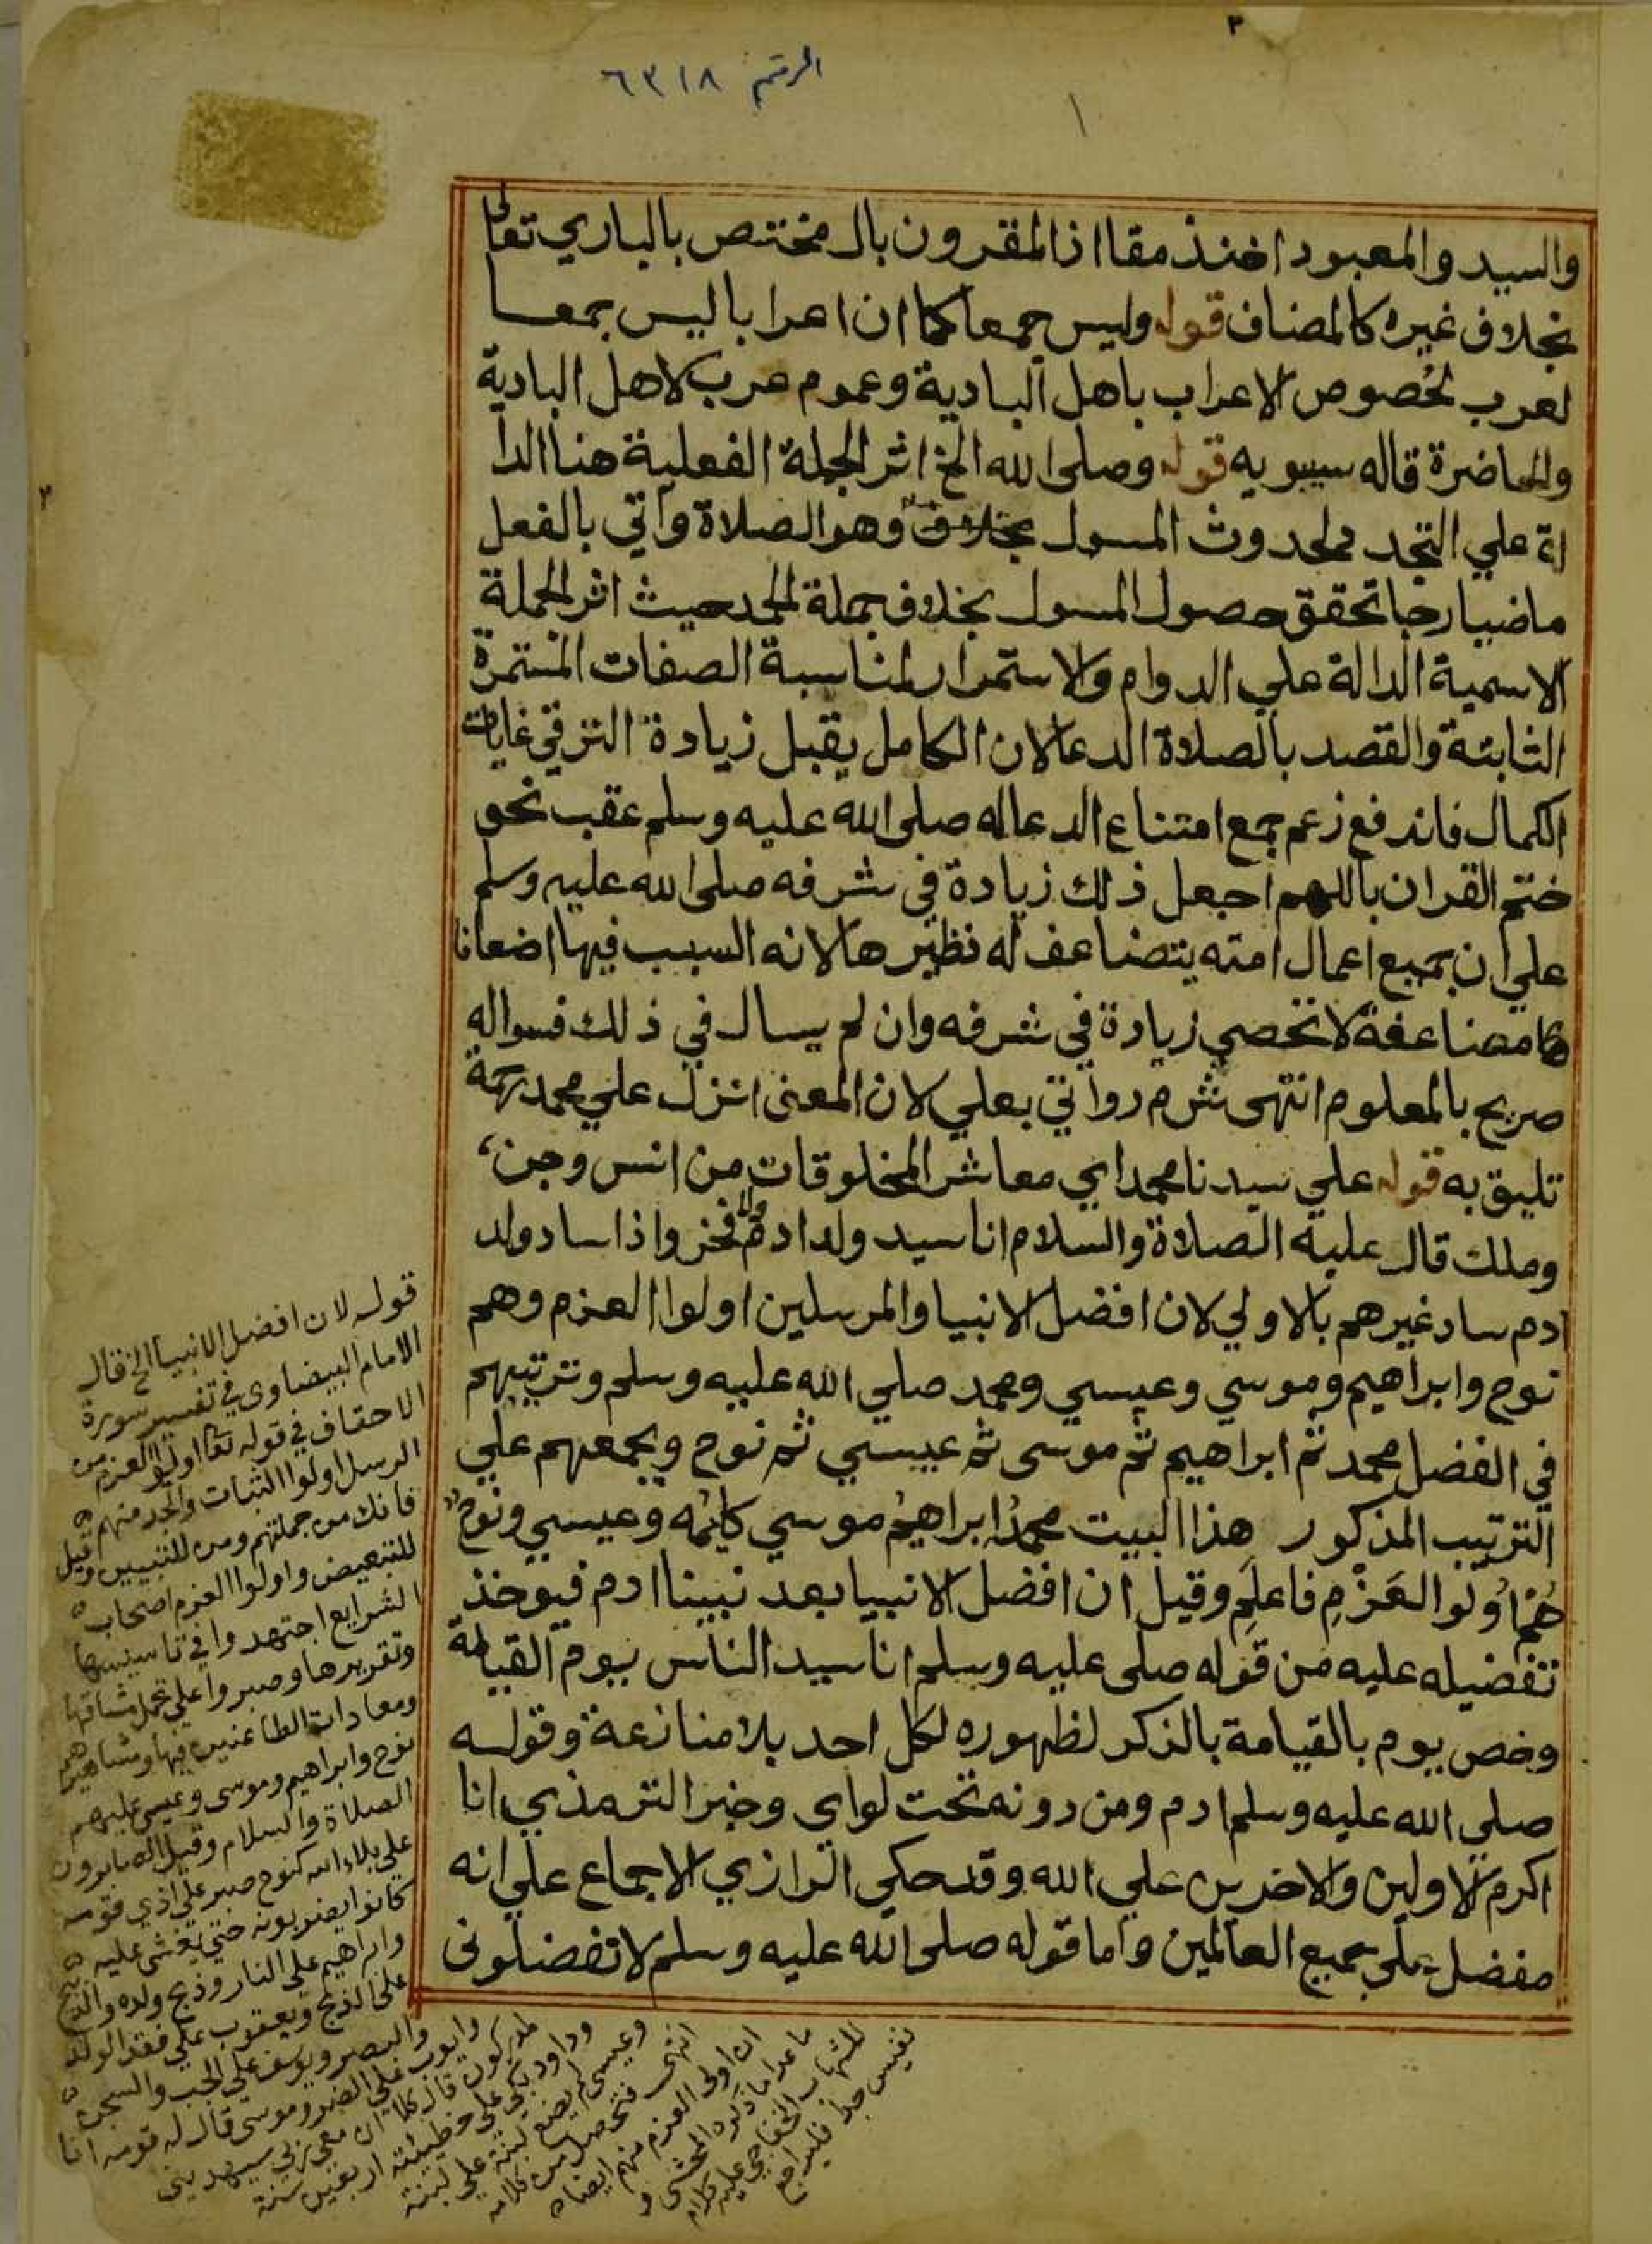 ٣
الرقم ٦٣١٨
١
والسيد والمعبود اخذ مقا اذ المقرون بال مختص بالباري تعالى
بخلاف غيره كالمضاف قوله وليس جمعا كما ان اعرابا ليس بمعا
لعرب لخصوص الاعراب باهل البادية وعموم عرب لاهل البادية
والحاضرة قاله سيبويه قوله وصلى الله الخ اثر الجملة الفعلية هنا الدا
لة علي التجد لحدوث المسول وهو الصلاة وآتي بالفعل
ماضيا رجا تحقق حصول المسول بخلاف جملة الحمد حيث اثر الجملة
الاسمية الدالة علي الدوام والاستمرار لمناسبة الصفات المستمرة
الثابتة والقصد بالصلاة الدعا لان الكامل يقبل زيادة الترقي غايات
الكمال فاندفع زعم جمع امتناع الدعا له صلى الله عليه وسلم عقب نحو
ختم القران باللهم اجعل ذلك زيادة في شرفه صلى الله عليه وسلم
علي ان جميع اعمال امته يتضاعف له نظيرها لانه السبب فيها اضعافا
مضاعفة لا تحصي زيادة في شرفه وان لم يسال في ذلك فسواله
صريح بالمعلوم انتهى ش م ر واتي بعلي لان المعنى انزل علي محمد رحمة
تليق به قوله علي سيدنا محمد اي معاشر المخلوقات من انس وجن
وملك قال عليه الصلاة والسلام انا سيد ولد ادم ولا فخر واذا ساد ولد
ادم ساد غيرهم بالاولي لان افضل الانبيا والمرسلين اولوا العزم وهم
نوح وابراهيم وموسي وعيسي ومحمد صلي الله عليه وسلم وترتيبهم
في الفضل محمد ثم ابراهيم ثم موسى ثم عيسي ثم نوح ويجمعهم علي
الترتيب المذكور هذا البيت محمدُ ابراهيمُ موسي كليمُه وعيسي ونوحٌ
هُمُ اُولُوا العَزْمِ فاعلَمِ وقيل ان افضل الانبيا بعد نبينا ادم فيوخذ
تفضيله عليه من قوله صلى عليه وسلم انا سيد الناس يوم القيامة
وخص يوم بالقيامة بالذكر لظهوره لكل احد بلا منازعة وقوله
صلي الله عليه وسلم ادم ومن دونه تحت لواى وخبر الترمذي انا
اكرم الاولين والاخرين علي الله وقد حكي الرازي الاجماع علي انه
مفضل علي جميع العالمين واما قوله صلى الله عليه وسلم لا تفضلونى
قوله لان افضل الانبيا الخ قال
الامام البيضاوى في تفسير سورة
الاحقاف في قوله تعا اولوا العزم من
الرسل اولوا الثبات والجد منهم
فانك من جملتهم ومن للتبيين وقيل
للتبعيض واولوا العزم اصحاب
الشرايع اجتهدوا في تاسيسها
وتقريرها وصبروا علي تحمل مشاقها
ومعادات الطاعنين فيها ومشاهيرهم
نوح وابراهيم وموسى وعيسي عليهم
الصلاة والسلام وقيل الصابرون
علي بلاء الله كنوح صبر علي اذي قومه
كانوا يضربونه حتي يغشى عليه
وابراهيم علي النار وذبح ولده والذبيح
علي الذبح ويعقوب علي فقد الولد
والبصر ويوسف علي الجب والسجن
وايوب علي الضر وموسى قال له قومه انا
لمدركون قال كلا ان معي ربي سيهدين
وداود بكى علي خطيئته اربعين سنة
وعيسى لم يضع لبنة علي لبنة
انتهى فتحصل من كلامه
ان اولى العزم منهم ايضا
ما عدا ما ذكره المحشى و
للشهاب الخفاجي عليه كلام
نفيس جدا فليراجع